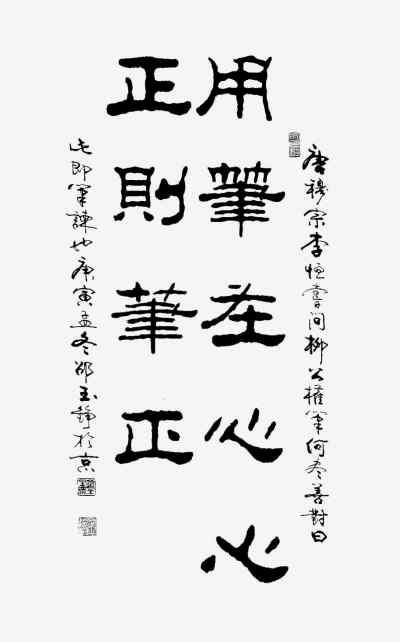 唐穆宗李恒嘗问柳公權筆何尽善對曰
用筆在心心
正則筆正
此即筆諫也庚寅孟冬邵玉錚於京